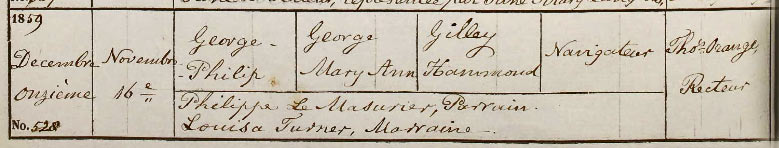 1859
Decembre
Onzième
No. 528
Novembre
16e
George-
-Philip
George
Mary Ann
Gilley
Hammond
Navigateur
Thos. Orange,
Recteur
Philippe Le Masurier, Parrain.
Louisa Turner, Marraine -.